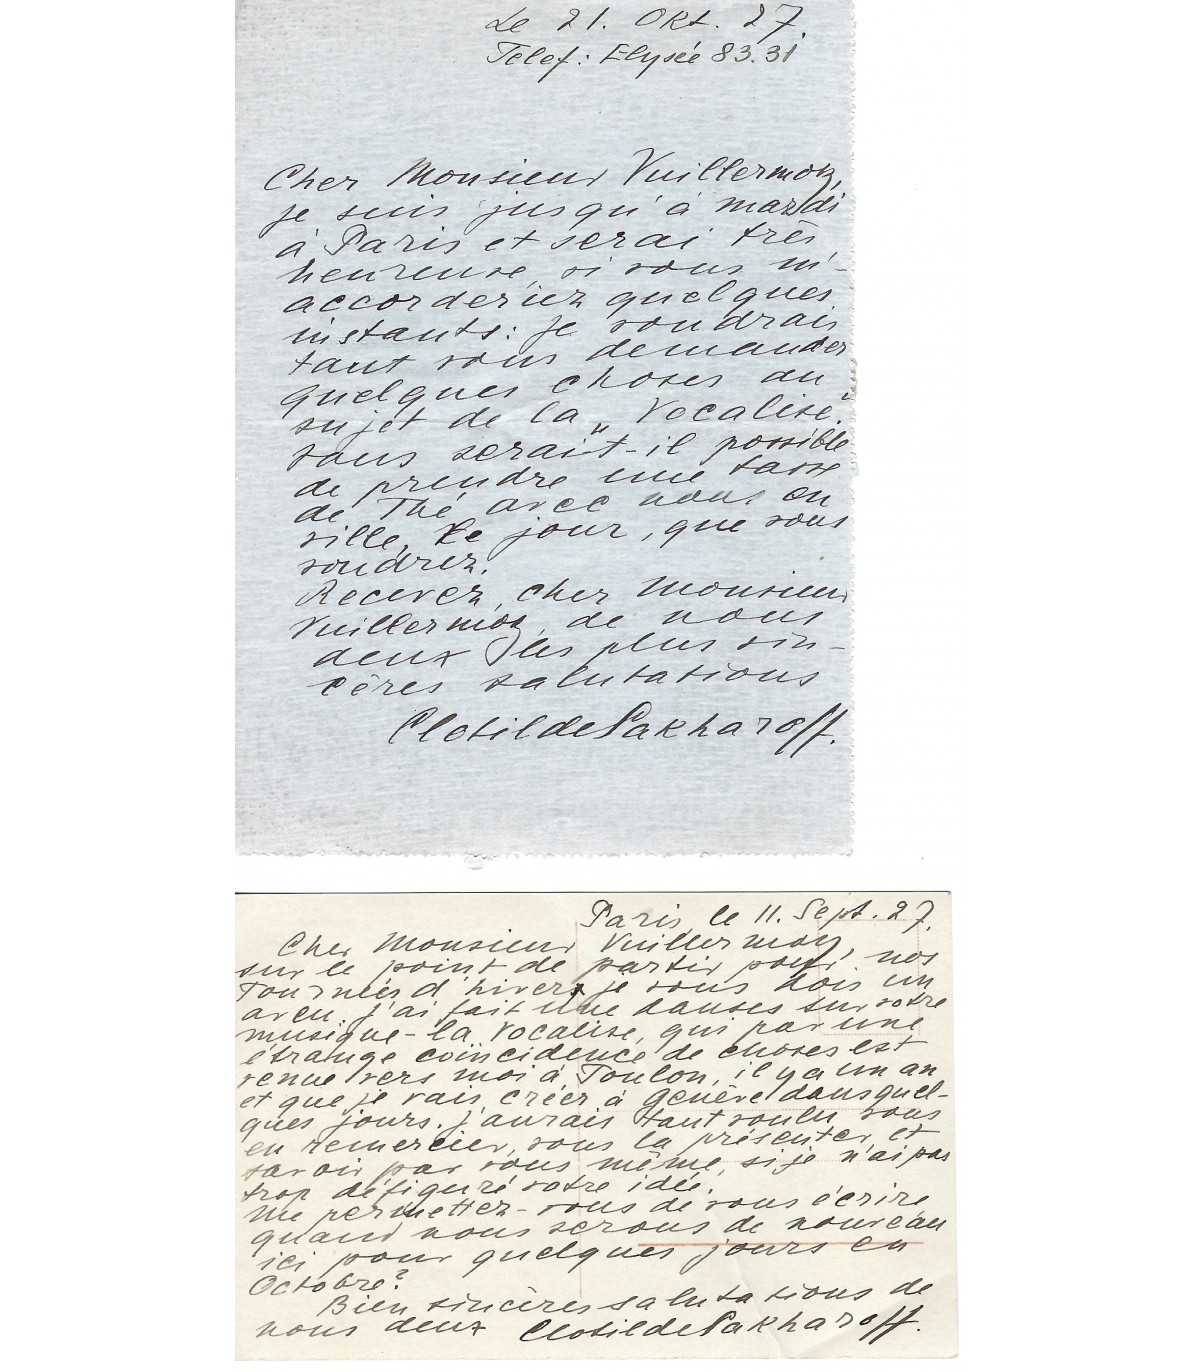 Le 21. Okt. 27.
Telef: Elysée 83.31
Cher Monsieur Vuillermoz,
je suis jusqu'à mardi
à Paris et serai très
heureuse, si vous m'-
accorderiez quelques
instants: je voudrais
tant vous demander
quelques choses au
sujet de la „Vocalise."
vous serait-il possible
de prendre une tasse
de Thé avec nous en
ville, le jour, que vous
voudrez.
Recevez, cher Monsieur
Vuillermoz, de nous
deux les plus sin-
cères salutations
Clotilde Sakharoff.
Paris, le 11. Sept. 27.
Cher Monsieur Vuillermoz,
sur le point de partir pour nos
Tournées d'hiver, je vous dois un
aveu. j'ai fait une danses sur votre
musique - la Vocalise, qui par une
étrange coïncidence de choses est
venue vers moi à Toulon, il y a un an
et que je vais créer à Genève dans quel-
ques jours. j'aurais tant voulu vous
en remercier, vous la présenter et
savoir par vous même, si je n'ai pas
trop défiguré votre idée.
Me permettez-vous de vous écrire
quand nous serons de nouveau
ici pour quelques jours en
Octobre?
Bien sincères salutations de
nous deux Clotilde Sakharoff.